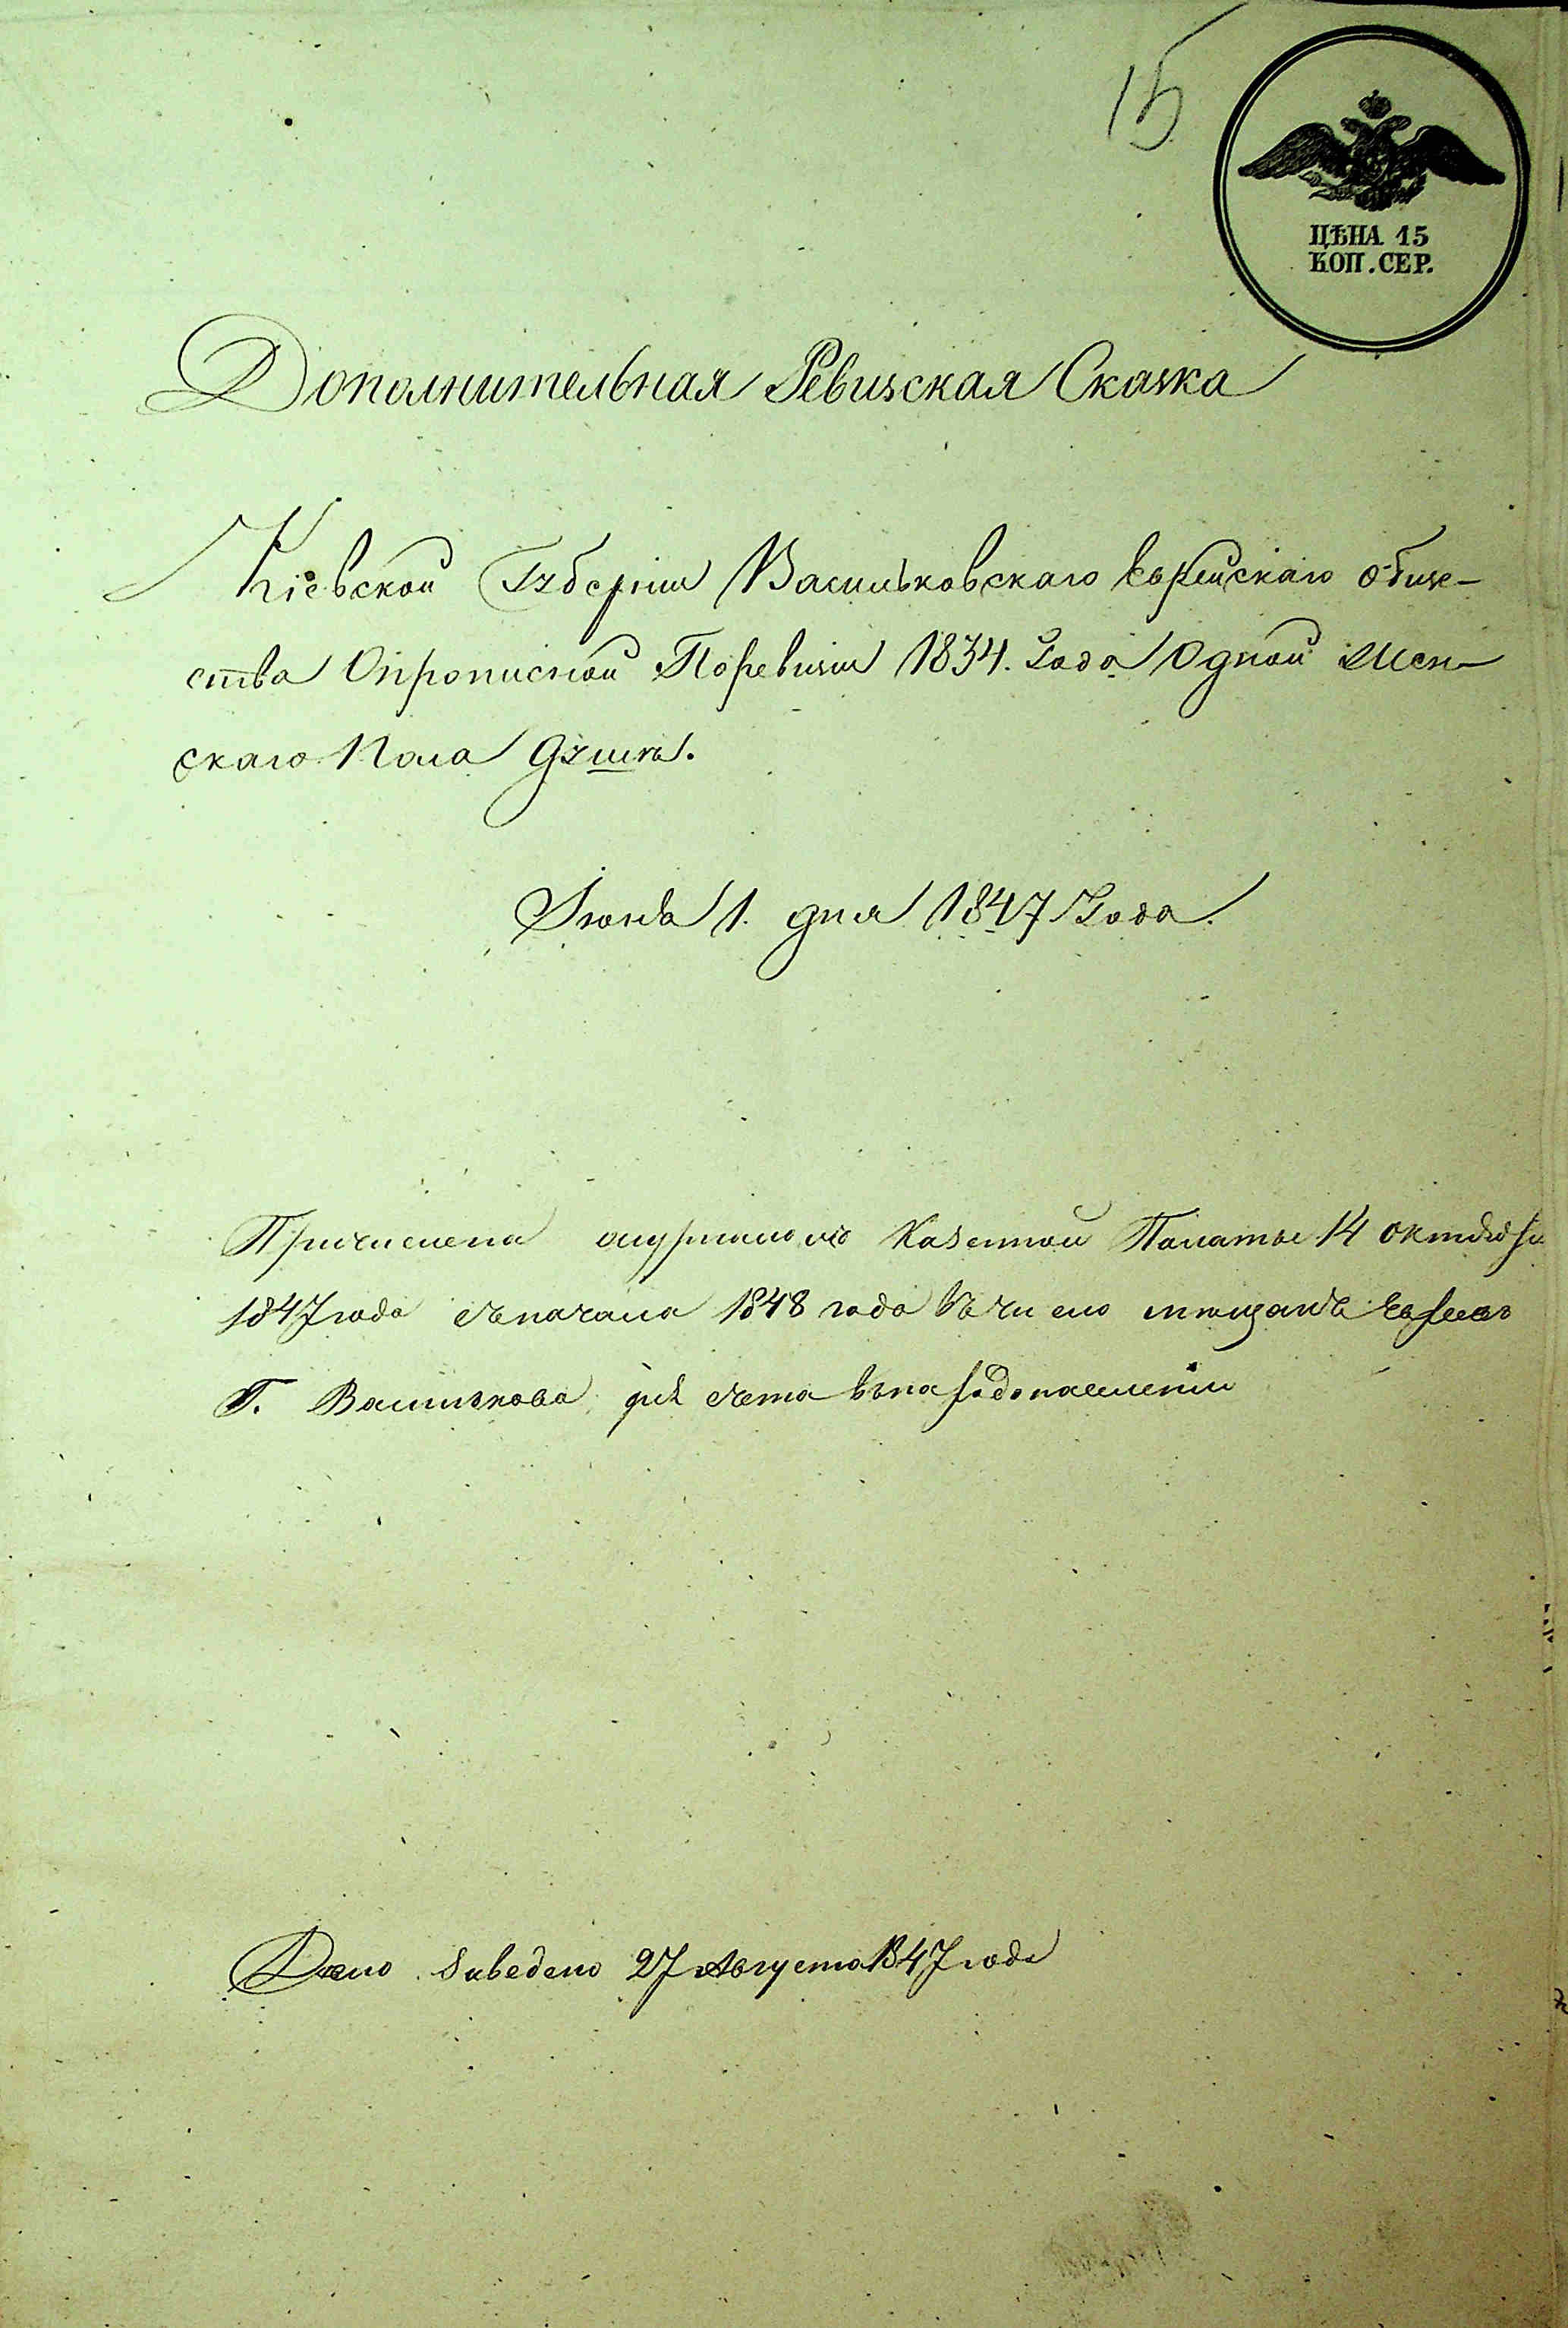 15
ЦѢНА 15
КОП. СЕР.
Дополнительная Ревизская Сказка
Кіевской Губерніи Васильковскаго Еврейскаго обще-
ства Опрописной Поревизіи 1834. Года Одной Жен-
скаго Пола Душѣ.
1. дня 1847 Года.
Причислена журналомъ Казенной Палаты 14 октября
1847 года съ начала 1848 года въ число мѣщанъ евреевъ
Г. Василькова для счета въ народонаселеніи
Дело заведено 27 Августа 1847 года